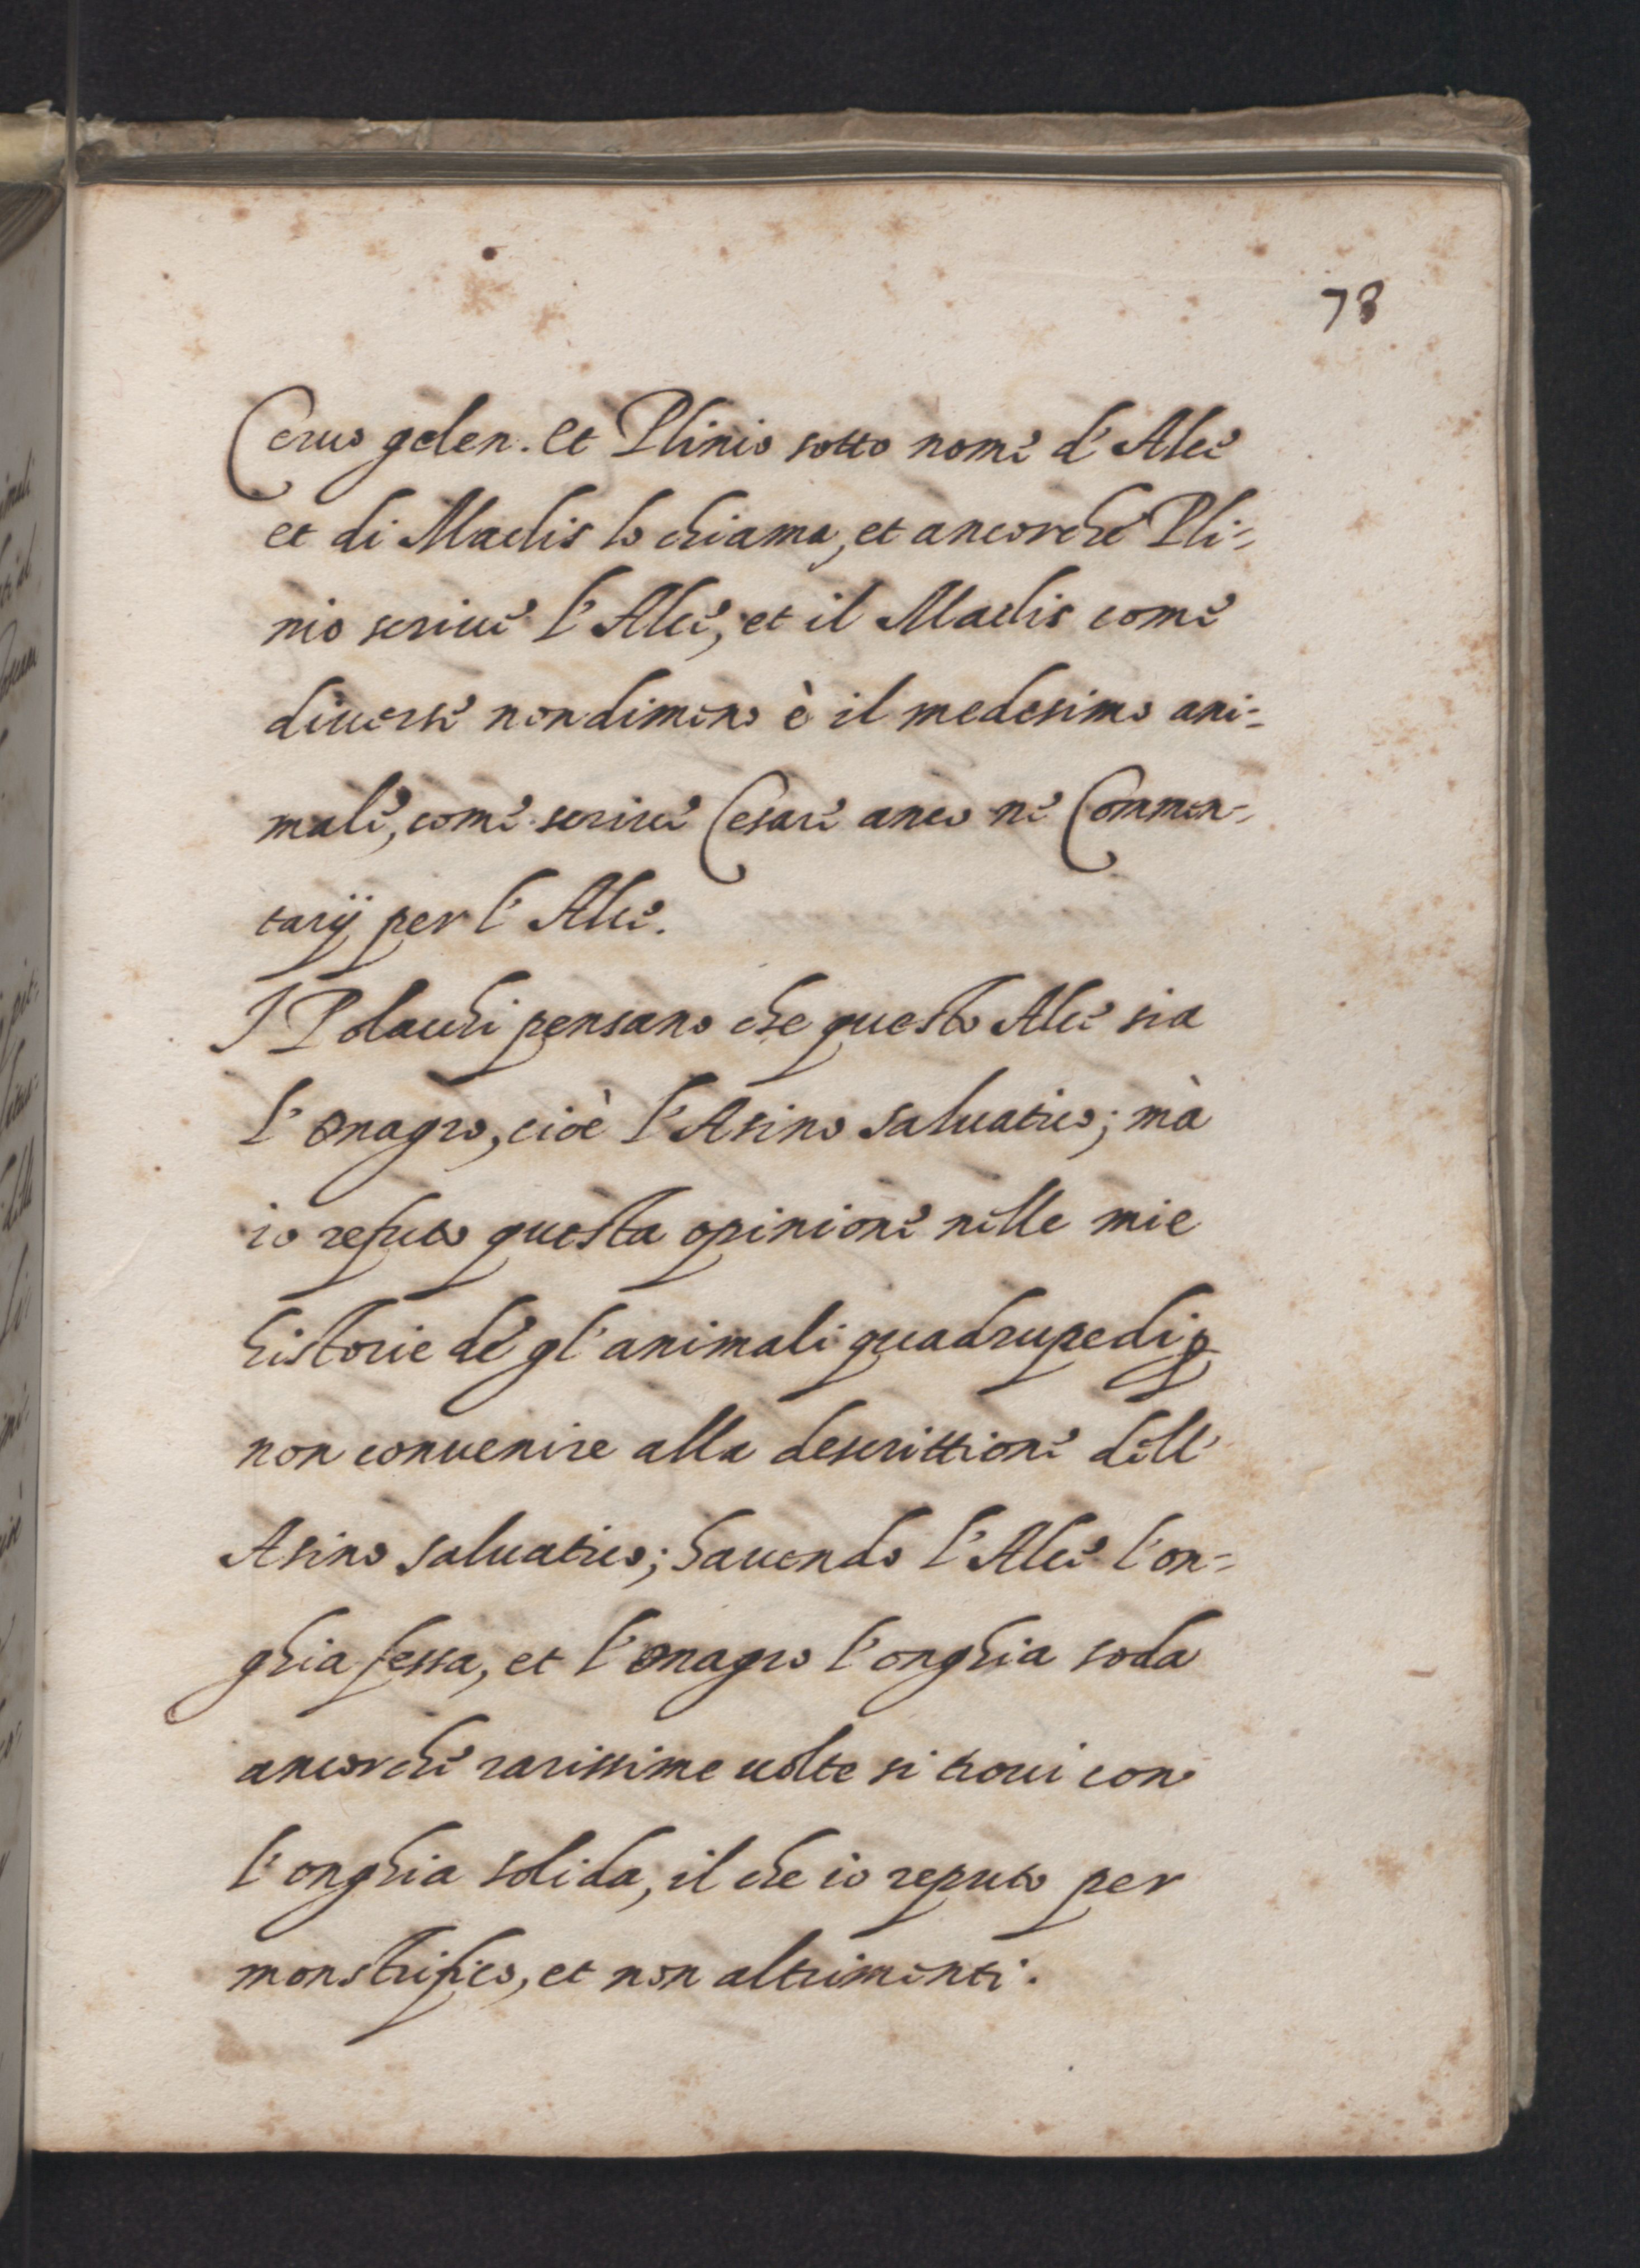 78
Ceruo gelen. Et Plinio sotto nome d'Alce
et di Maclis lo chiama, et ancorche Pli=
nio scriue l'Alce, et il Maclis come
diuersi nondimeno è il medesimo ani=
male, come scriue Cesare anco ne Commen=
tarij per l'Alce.
I Polacchi pensano che questo Alce sia
l'Onagro, cioè l'Asino saluatico; mà
io refuto questa opinione nelle mie
historie de gl'animali quadrupedi p
non conuenire alla descrittione dell'
Asino saluatico; hauendo l'Alce l'on=
ghia fessa, et l'Onagro l'onghia soda
ancorche rarissime uolte si troui con
l'onghia solida, il che io reputo per
monstrifico, et non altrimenti.